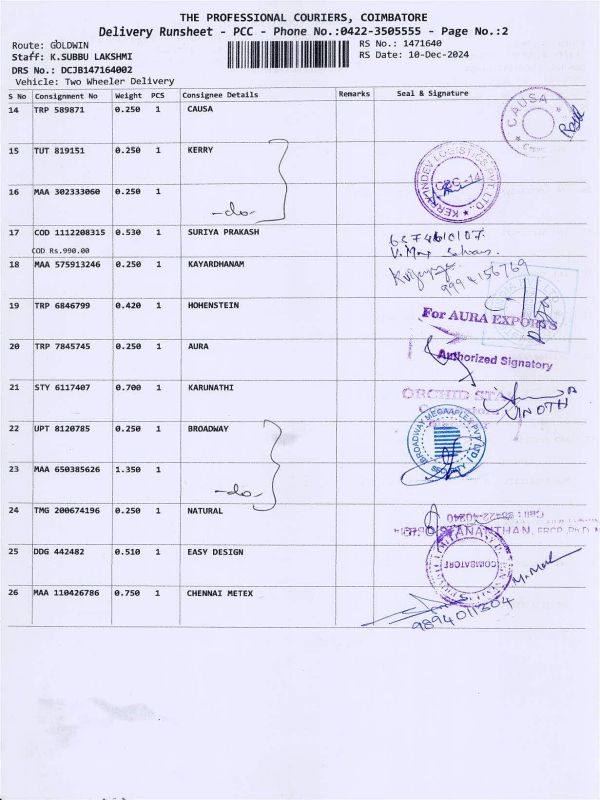 THE PROFESSIONAL COURIERS, COIMBATORE
Delivery Runsheet - PCC - Phone No.:0422-3505555 - Page No.:2
Route: GOLDWIN
RS No.: 1471640
Staff: K.SUBBU LAKSHMI
RS Date: 10-Dec-2024
DRS No.: DCJB147164002
Vehicle: Two Wheeler Delivery
S No Consignment No Weight PCS Consignee Details Remarks Seal & Signature
14 TRP 589871 0.250 1 CAUSA
CAUSA
15 TUT 819151 0.250 1 KERRY
KERRY INDEV LOGISTICS PVT. LTD.
16 MAA 302333060 0.250 1 -do-
17 COD 1112208315 0.530 1 SURIYA PRAKASH
COD Rs.990.00
18 MAA 575913246 0.250 1 KAYARDHANAM
19 TRP 6846799 0.420 1 HOHENSTEIN
For AURA EXPORTS
20 TRP 7845745 0.250 1 AURA
Authorized Signatory
21 STY 6117407 0.700 1 KARUNATHI
ORCHID
VINOTH
22 UPT 8120785 0.250 1 BROADWAY
BROADWAY MEGAAPLEX PVT LTD
SECURITY
23 MAA 650385626 1.350 1 -do-
24 TMG 200674196 0.250 1 NATURAL
25 DDG 442482 0.510 1 EASY DESIGN
COIMBATORE
26 MAA 110426786 0.750 1 CHENNAI METEX
9894011204